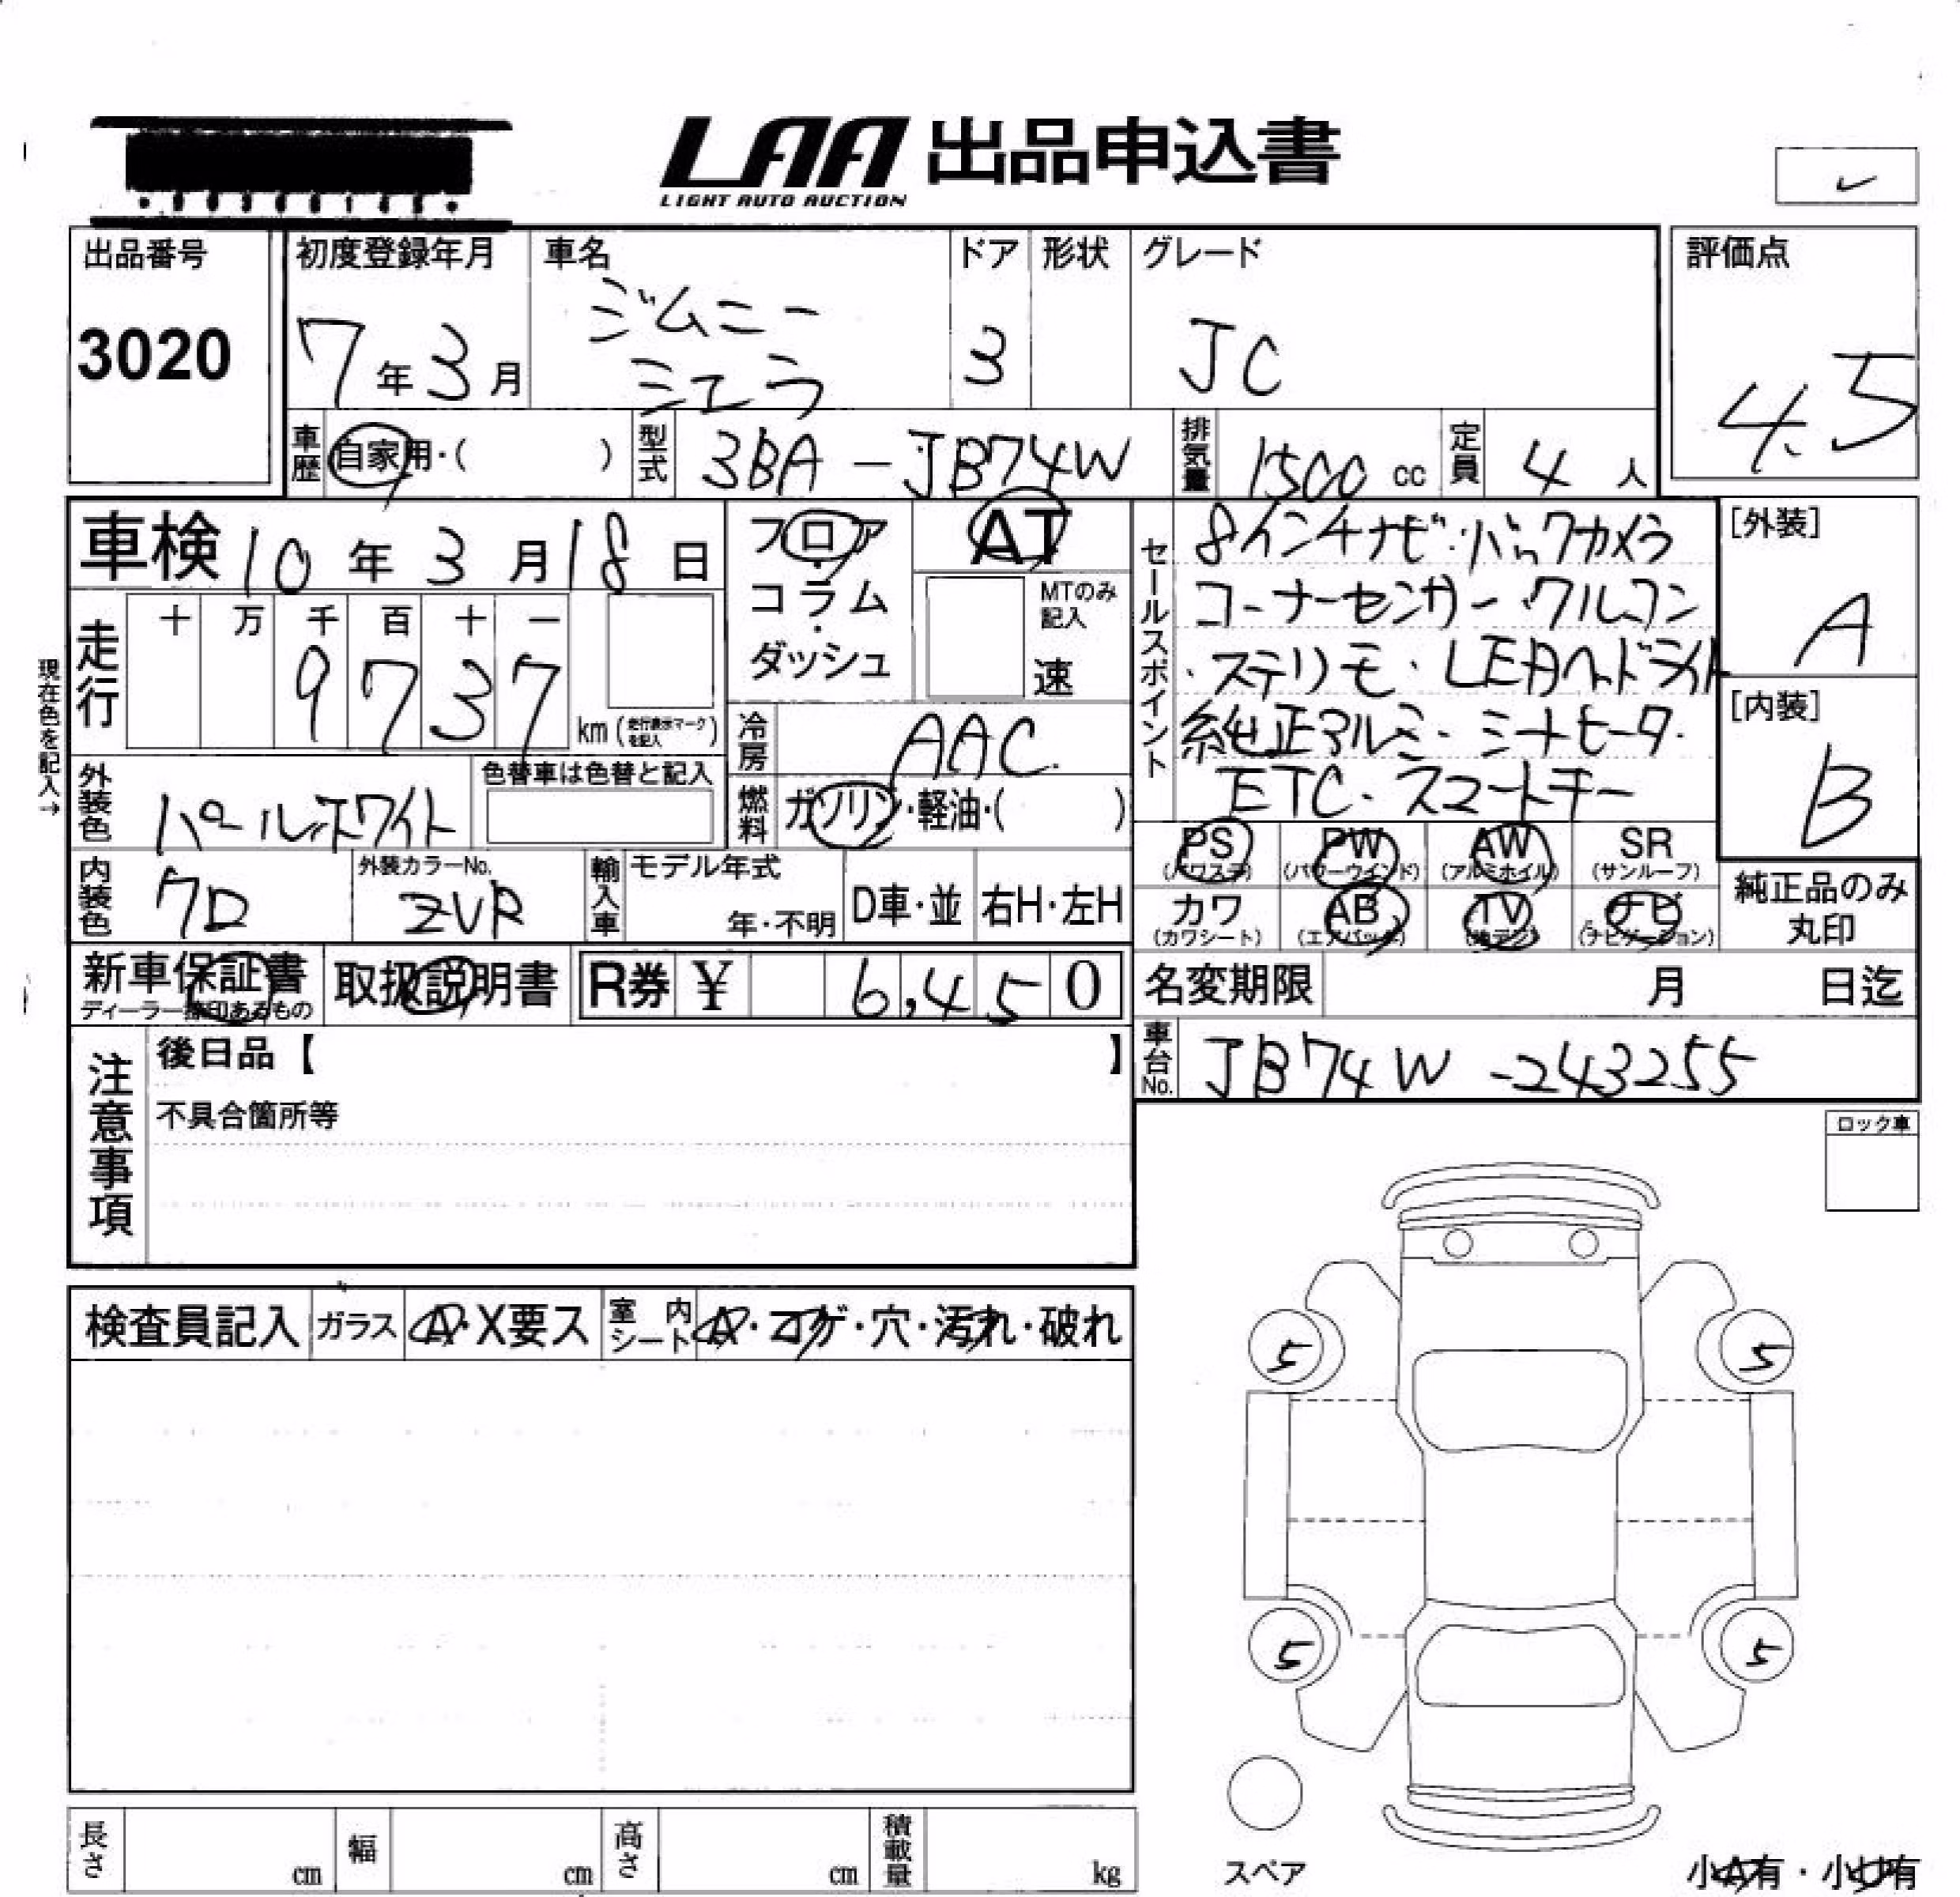 LAA 出品申込書
LIGHT AUTO AUCTION
出品番号 初度登録年月 車名 ドア 形状 グレード 評価点
3020 7年3月 ジムニー シエラ 3 JC 4.5
車歴 自家用・( ) 型式 3BA-JB74W 排気量 1500 cc 定員 4 人
車検 10年3月18日 フロア・コラム・ダッシュ AT
MTのみ記入 速
セールスポイント
8インチナビ・バックカメラ
コーナーセンサー・クルコン
・ステリモ・LEDヘッドライト
純正アルミ・シートヒータ・
ETC・スマートキー
[外装] A
[内装] B
現在色を記入→
走行 十 万 千 百 十 一
9 7 3 7 km (走行表示マークを記入)
冷房 AAC
外装色 パールホワイト 色替車は色替と記入
燃料 ガソリン・軽油・( )
内装色 クロ 外装カラーNo. ZVR 輸入車 モデル年式 年・不明 D車・並 右H・左H
PS (パワステ) PW (パワーウインド) AW (アルミホイル) SR (サンルーフ)
カワ (カワシート) AB (エアバック) TV (地デジ) ナビ (ナビゲーション)
純正品のみ
丸印
新車保証書 取扱説明書 R券 ¥ 6,450
ディーラー捺印あるもの
名変期限 月 日迄
車台No. JB74W-243255
注意事項
後日品【 】
不具合箇所等
ロック車
検査員記入 ガラス A・X要ス 室内シート A・コゲ・穴・汚れ・破れ
5 5
5 5
スペア
小A有・小U有
長さ cm 幅 cm 高さ cm 積載量 kg